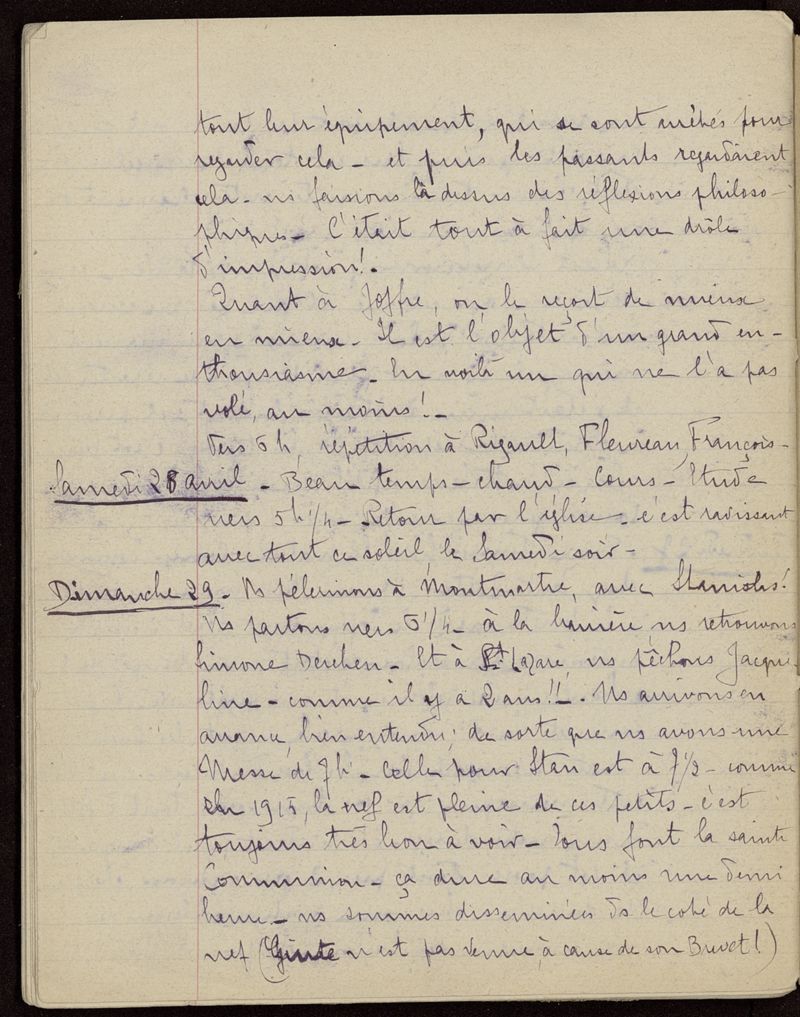 tout leur équipement, qui se sont arrêtés pour
regarder cela - et puis les passants regardaient
cela - ns faisions là dessus des réflexions philoso-
phiques - C'était tout à fait une drôle
d'impression! -
Quant à Joffre, on le reçoit de mieux
en mieux - Il est l'objet d'un grand en-
thousiasme - En voilà un qui ne l'a pas
volé, au moins! -
Vers 5h, répétition à Rigault, Fleureau, François -
Samedi 28 avril - Beau temps - chaud - Cours - Etude
vers 5h 1/4 - Retour par l'église - c'est ravissant
avec tout ce soleil le Samedi soir -
Dimanche 29 - Ns pélerinons à Montmartre, avec Stanislas!
Ns partons vers 5 1/4 - à la barrière, ns retrouvons
Simone - Et à St Lazare, ns pêchons Jacque-
line - comme il y a 2 ans!! - Ns arrivons en
avance, bien entendu; de sorte que ns avons une
Messe de 7h - Celle pour Stan est à 7 1/2 - comme
en 1915, la nef est pleine de ces petits - c'est
toujours très bon à voir - Tous font la sainte
Communion - ça dure au moins une demi
heure - ns sommes disséminées ds le coté de la
nef (Ginte n'est pas venue, à cause de son Brevet!)